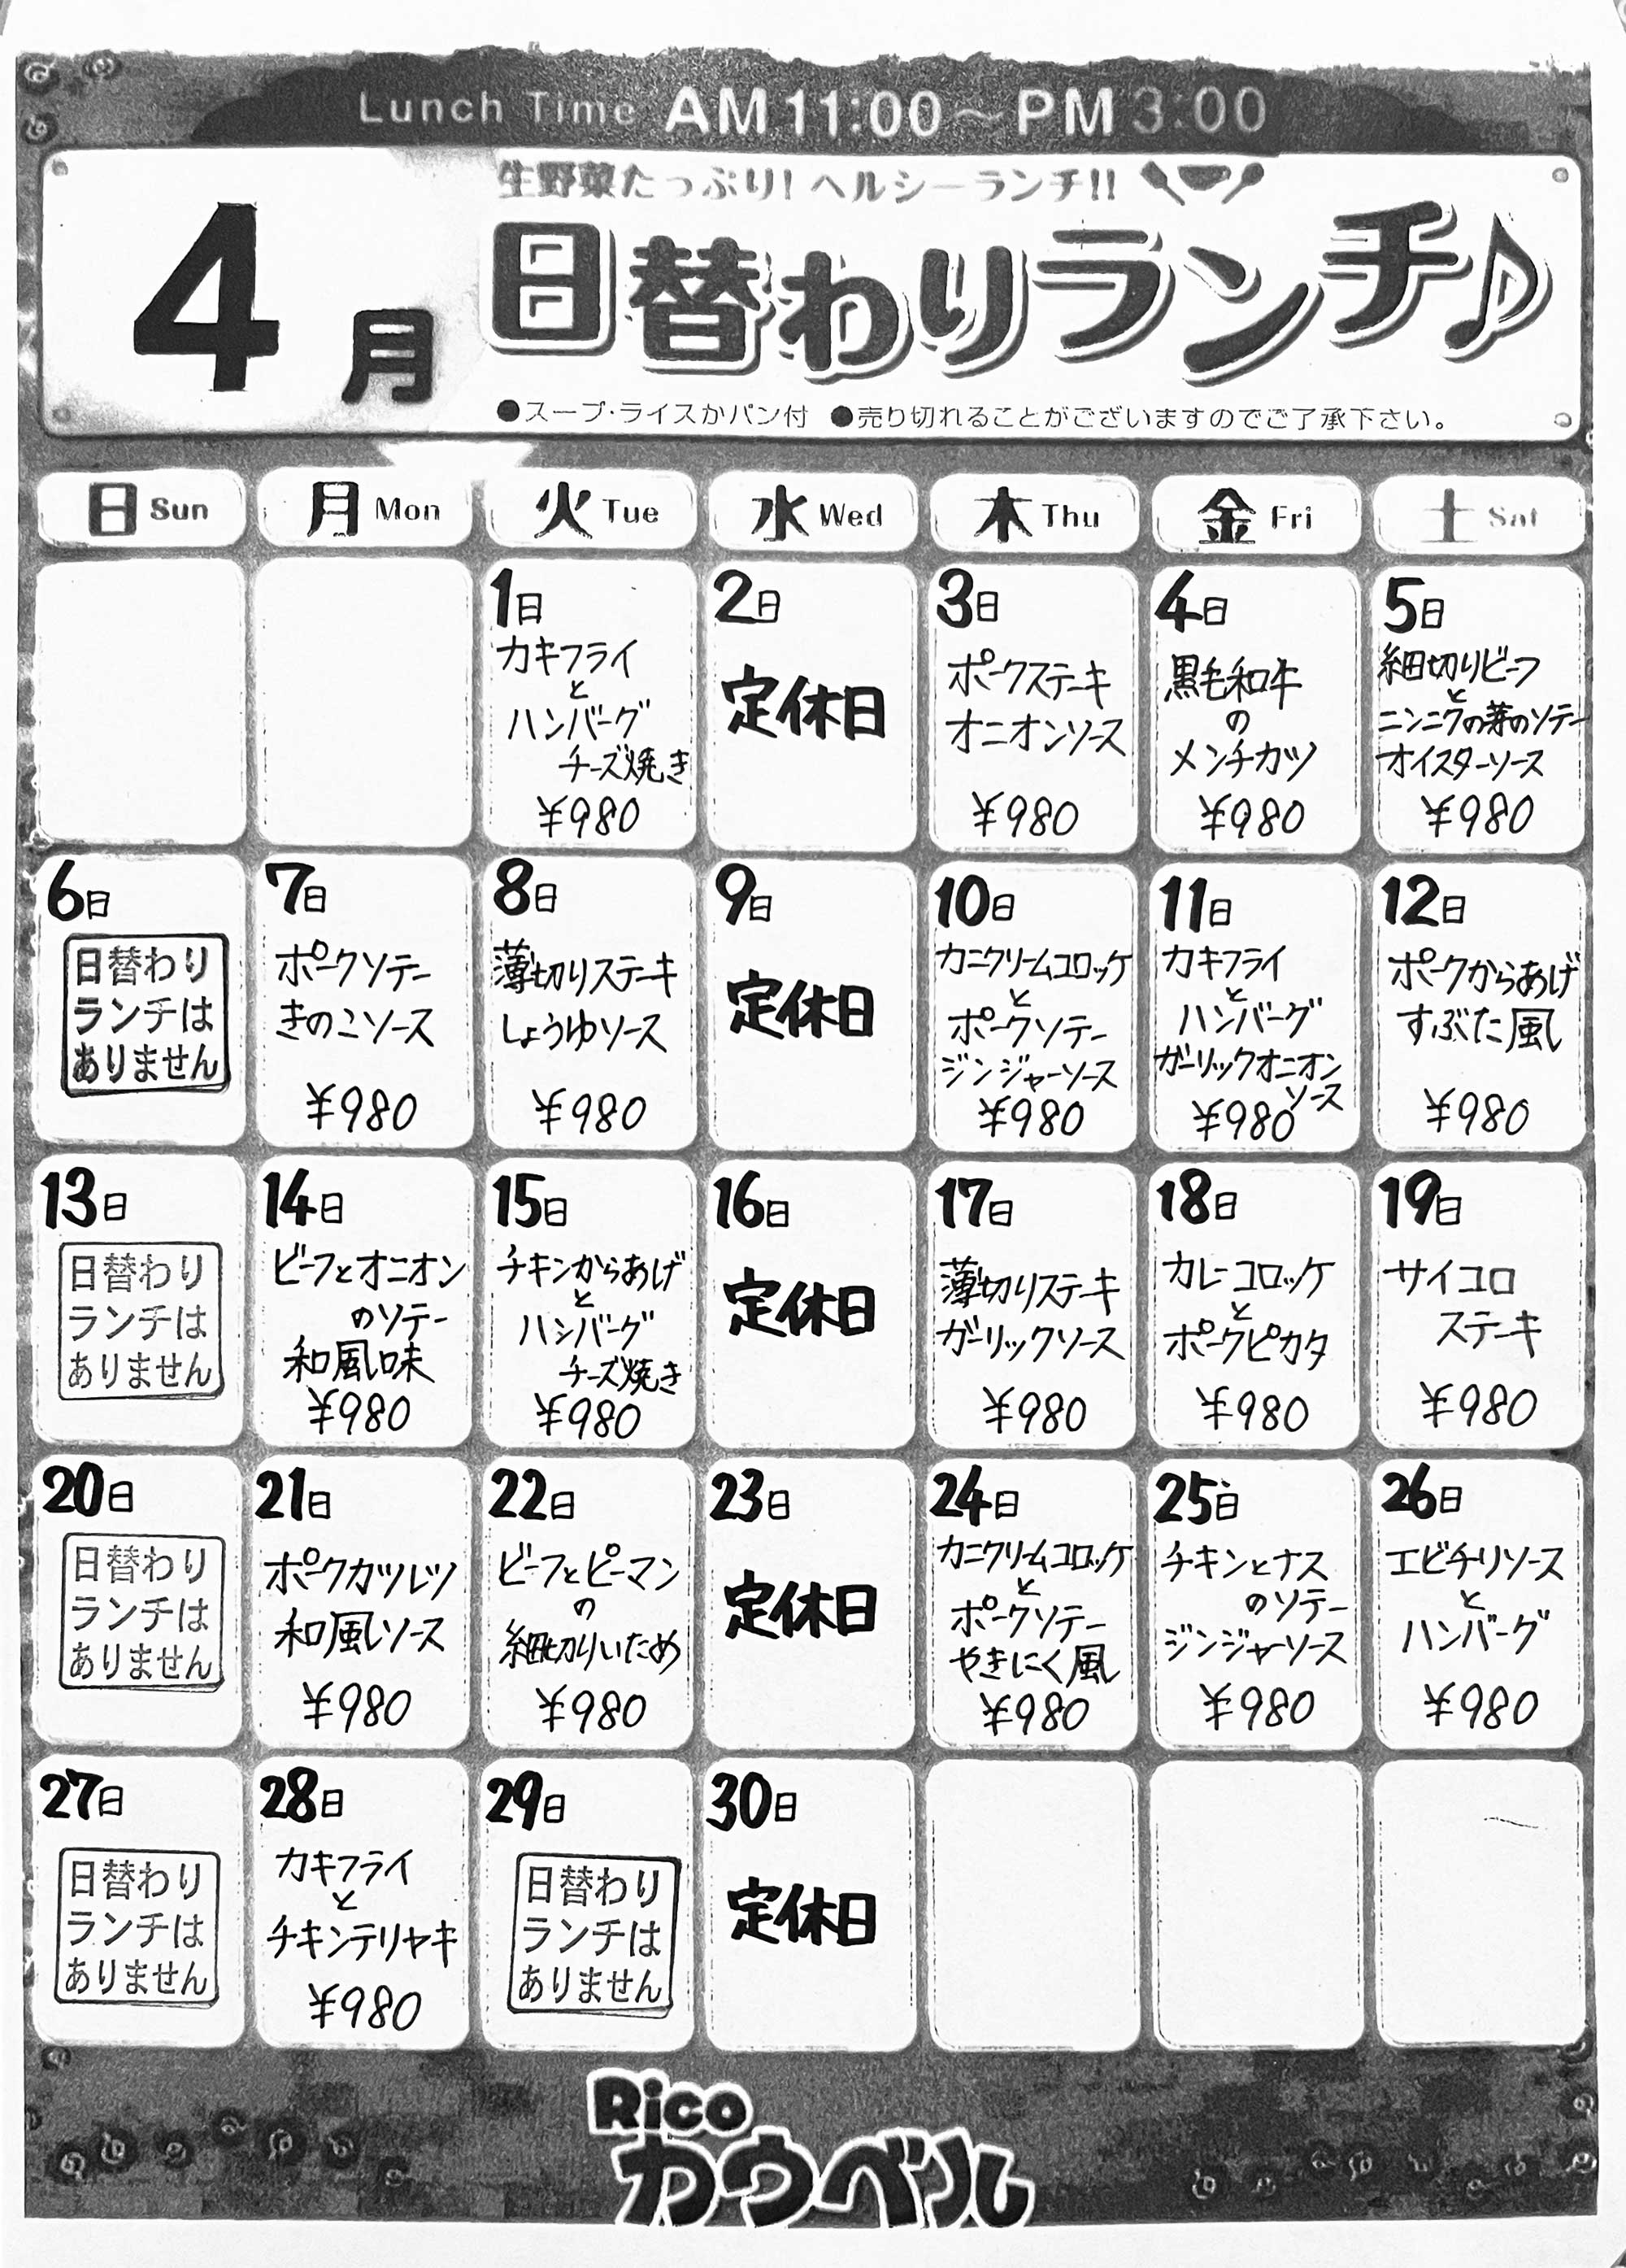 Lunch Time AM11:00～PM3:00
生野菜たっぷり!ヘルシーランチ!!
4月
日替わりランチ♪
●スープ・ライスかパン付 ●売り切れることがございますのでご了承下さい。
日 Sun
月 Mon
火 Tue
水 Wed
木 Thu
金 Fri
土 Sat
1日
カキフライ
と
ハンバーグ
チーズ焼き
¥980
2日
定休日
3日
ポークステーキ
オニオンソース
¥980
4日
黒毛和牛
の
メンチカツ
¥980
5日
細切りビーフ
と
ニンニクの芽のソテー
オイスターソース
¥980
6日
日替わり
ランチは
ありません
7日
ポークソテー
きのこソース
¥980
8日
薄切りステーキ
しょうゆソース
¥980
9日
定休日
10日
カニクリームコロッケ
と
ポークソテー
ジンジャーソース
¥980
11日
カキフライ
と
ハンバーグ
ガーリックオニオン
ソース
¥980
12日
ポークからあげ
すぶた風
¥980
13日
日替わり
ランチは
ありません
14日
ビーフとオニオン
のソテー
和風味
¥980
15日
チキンからあげ
と
ハンバーグ
チーズ焼き
¥980
16日
定休日
17日
薄切りステーキ
ガーリックソース
¥980
18日
カレーコロッケ
と
ポークピカタ
¥980
19日
サイコロ
ステーキ
¥980
20日
日替わり
ランチは
ありません
21日
ポークカツレツ
和風ソース
¥980
22日
ビーフとピーマン
の
細切りいため
¥980
23日
定休日
24日
カニクリームコロッケ
と
ポークソテー
やきにく風
¥980
25日
チキンとナス
のソテー
ジンジャーソース
¥980
26日
エビチリソース
と
ハンバーグ
¥980
27日
日替わり
ランチは
ありません
28日
カキフライ
と
チキンテリヤキ
¥980
29日
日替わり
ランチは
ありません
30日
定休日
Rico
カウベル